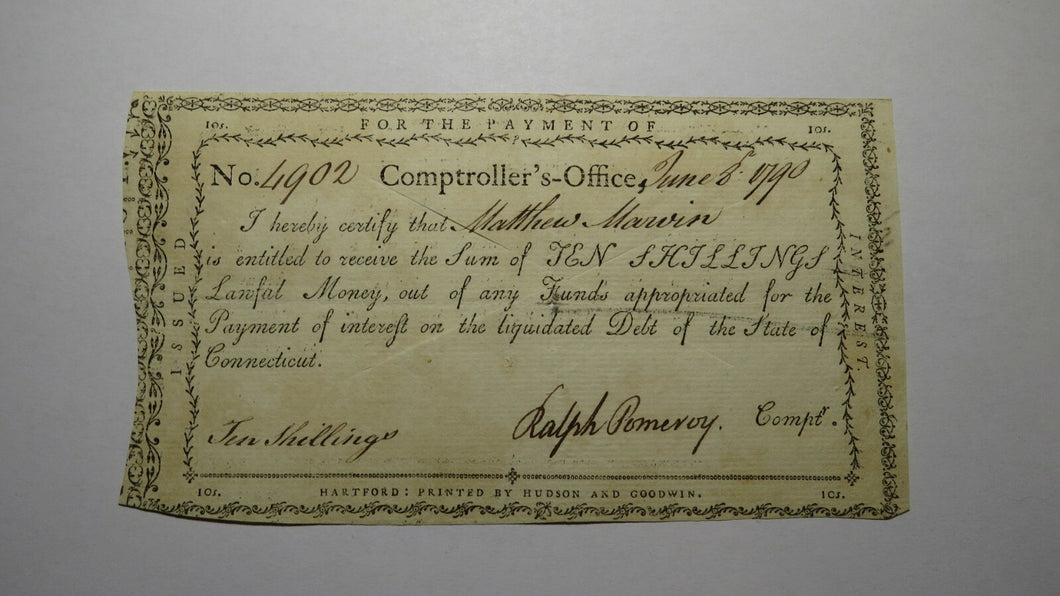 10s. FOR THE PAYMENT OF 10s.
No. 4902 Comptroller's-Office, June 8th 1790
I hereby certify that Matthew Marvin
is entitled to receive the Sum of TEN SHILLINGS
Lanfal Money, out of any Funds appropriated for the
Payment of intereſt on the liquidated Debt of the State of
Connecticut.
Ten Shillings Ralph Pomeroy. Comptr.
10s. HARTFORD: PRINTED BY HUDSON AND GOODWIN. 10s.
ISSUED
INTEREST